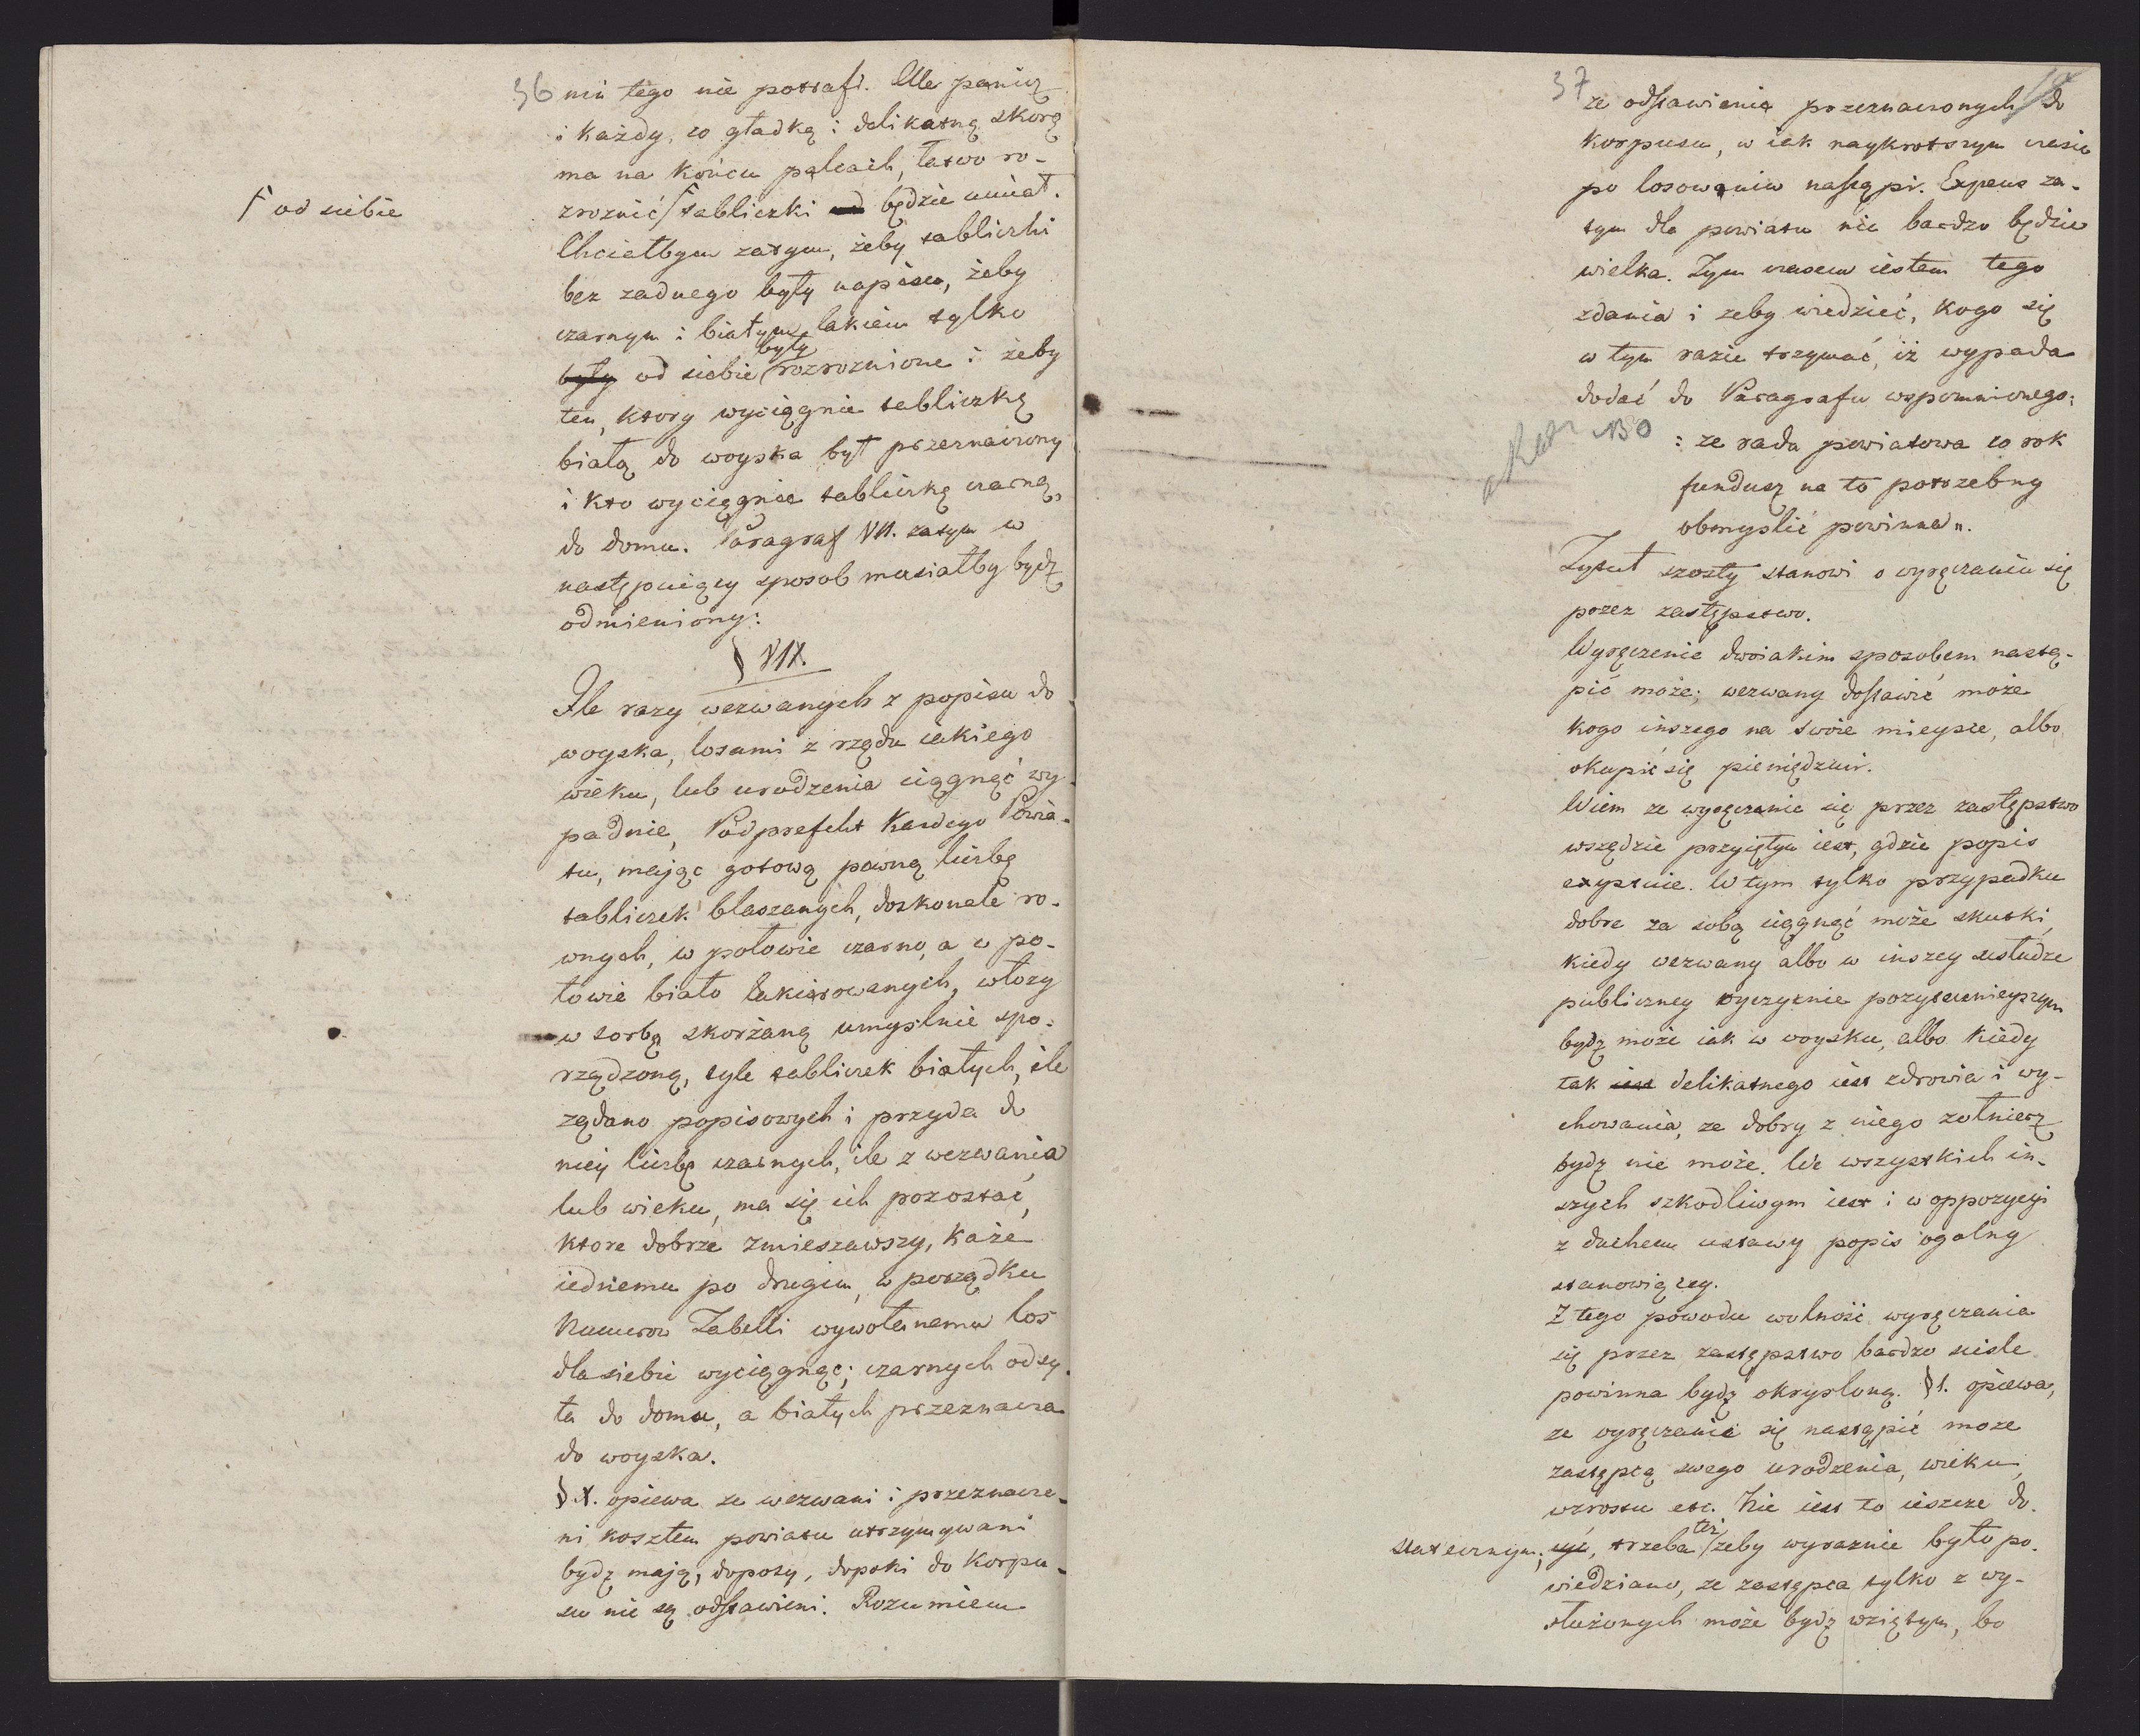 36 nin tego nie potrafi. Ale panicz
i każdy, co gładką i delikatną skorę
ma na końcu palcach, łatwo ro-
zroznić / tabliczki od będzie umiał.
/ od siebie
Chciałbym zatym, żeby tabliczki
bez zadnego były napisu, żeby
czarnym i białym lakiem tylko
były od siebie były rozroznione i żeby
ten, ktory wyciągnie tabliczkę
białą do woyska był przeznaczony
i kto wyciągnie tabliczkę czarną,
do domu. Paragraf VII. zatym w
następuiący sposob musiałby bydź
odmieniony:
§ VII.
Ile razy wezwanych z popisu do
woyska, losami z rzędu iakiego
wieku, lub urodzenia ciągnąć wy-
padnie, Podprefekt Kazdego Powia-
tu, mając gotową pewną liczbę
tabliczek blaszanych, doskonale ro-
wnych, w połowie czarno, a w po-
łowie biało lakierowanych, włozy
w torbę skorżaną umyslnie spo-
rządzoną, tyle tabliczek białych, ile
ządano popisowych i przyda do
niey liczbę czarnych, ile z wezwania
lub wieku, ma się ich pozostać,
ktore dobrze zmieszawszy, każe
iednemu po drugim, w porządku
Numerow Tabelli wywołanemu los
dla siebie wyciągnąć; czarnych odsy-
ła do domu, a białych przeznacza
do woyska.
§. X. opiewa ze wezwani i przeznacze-
ni kosztem powiatu utrzymywani
bydź mają, dopoty, dopoki do Korpu-
su nie są odstawieni. Rozumiem
37
ze odstawienia przeznaczonych do
Korpusu, w iak naykrotszym czasie
po losowaniu nastąpi. Expens za-
tym dla powiatu nie bardzo będzie
wielka. Tym czasem iestem tego
zdania i zeby wiedzieć, kogo się
w tym razie trzymać, iż wypada
dodać do Paragrafu wspomnionego:
: ze rada powiatowa co rok
fundusz na to potrzebny
obmyslić powinna".
Tytuł szosty stanowi o wyręczaniu się
przez zastępstwo.
Wyręczenie dwoiakim sposobem nastą-
pić może; wezwany dostawić może
kogo inszego na swoie mieysce, albo
okupić się pieniędzmi.
Wiem ze wyręczanie się przez zastępstwo
wszędzie przyiętym iest, gdzie popis
exystuie. W tym tylko przypadku
dobre za sobą ciągnąć może skutki,
kiedy wezwany albo w inszey usłudze
publiczney oyczyznie pozytecznieyszym
bydź może iak w woysku, albo kiedy
tak iest delikatnego iest zdrowia i wy-
chowania, ze dobry z niego zołnierz
bydź nie może. We wszystkich in-
szych szkodliwym iest i w oppozycyi
z duchem ustawy popis ogolny
stanowiącey.
Z tego powodu wolność wyręczania
się przez zastępstwo bardzo scisle
powinna bydź okrysloną. § 1. opiewa,
ze wyręczanie się nastąpić moze
zastępcą swego urodzenia, wieku,
wzrostu etc. Nie iest to ieszcze do-
statecznym; trzeba też / zeby wyraznie było po-
wiedziano, ze zastępca tylko z wy-
służonych może bydź wziętym, bo